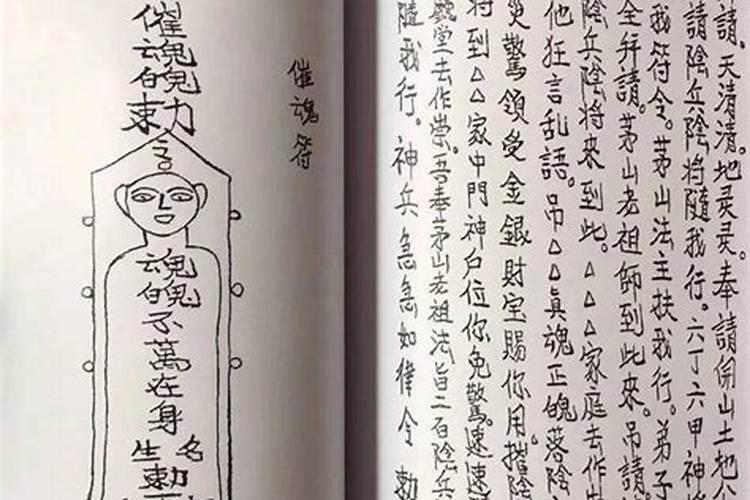 請。天清清。地灵灵。奉請開山土地公
請陰兵陰將隨我行。六丁六甲神將
我符令。茅山法主扶我行。弟子
全拜請。茅山老祖師到此来。吊請
陰兵陰將来到此。△△△家庭去作
他狂言乱語。吊△△真魂正魄落陰
災驚領受金銀財宝賜你用。摧陰
将到△△家中門神户位你免驚。速速
堂去作祟。吾奉茅山老祖法旨二百陰兵
隨我行。神兵急急如律令 勅
催魂符
催魂魄勅
魂魄不萬在身
名
生
勅